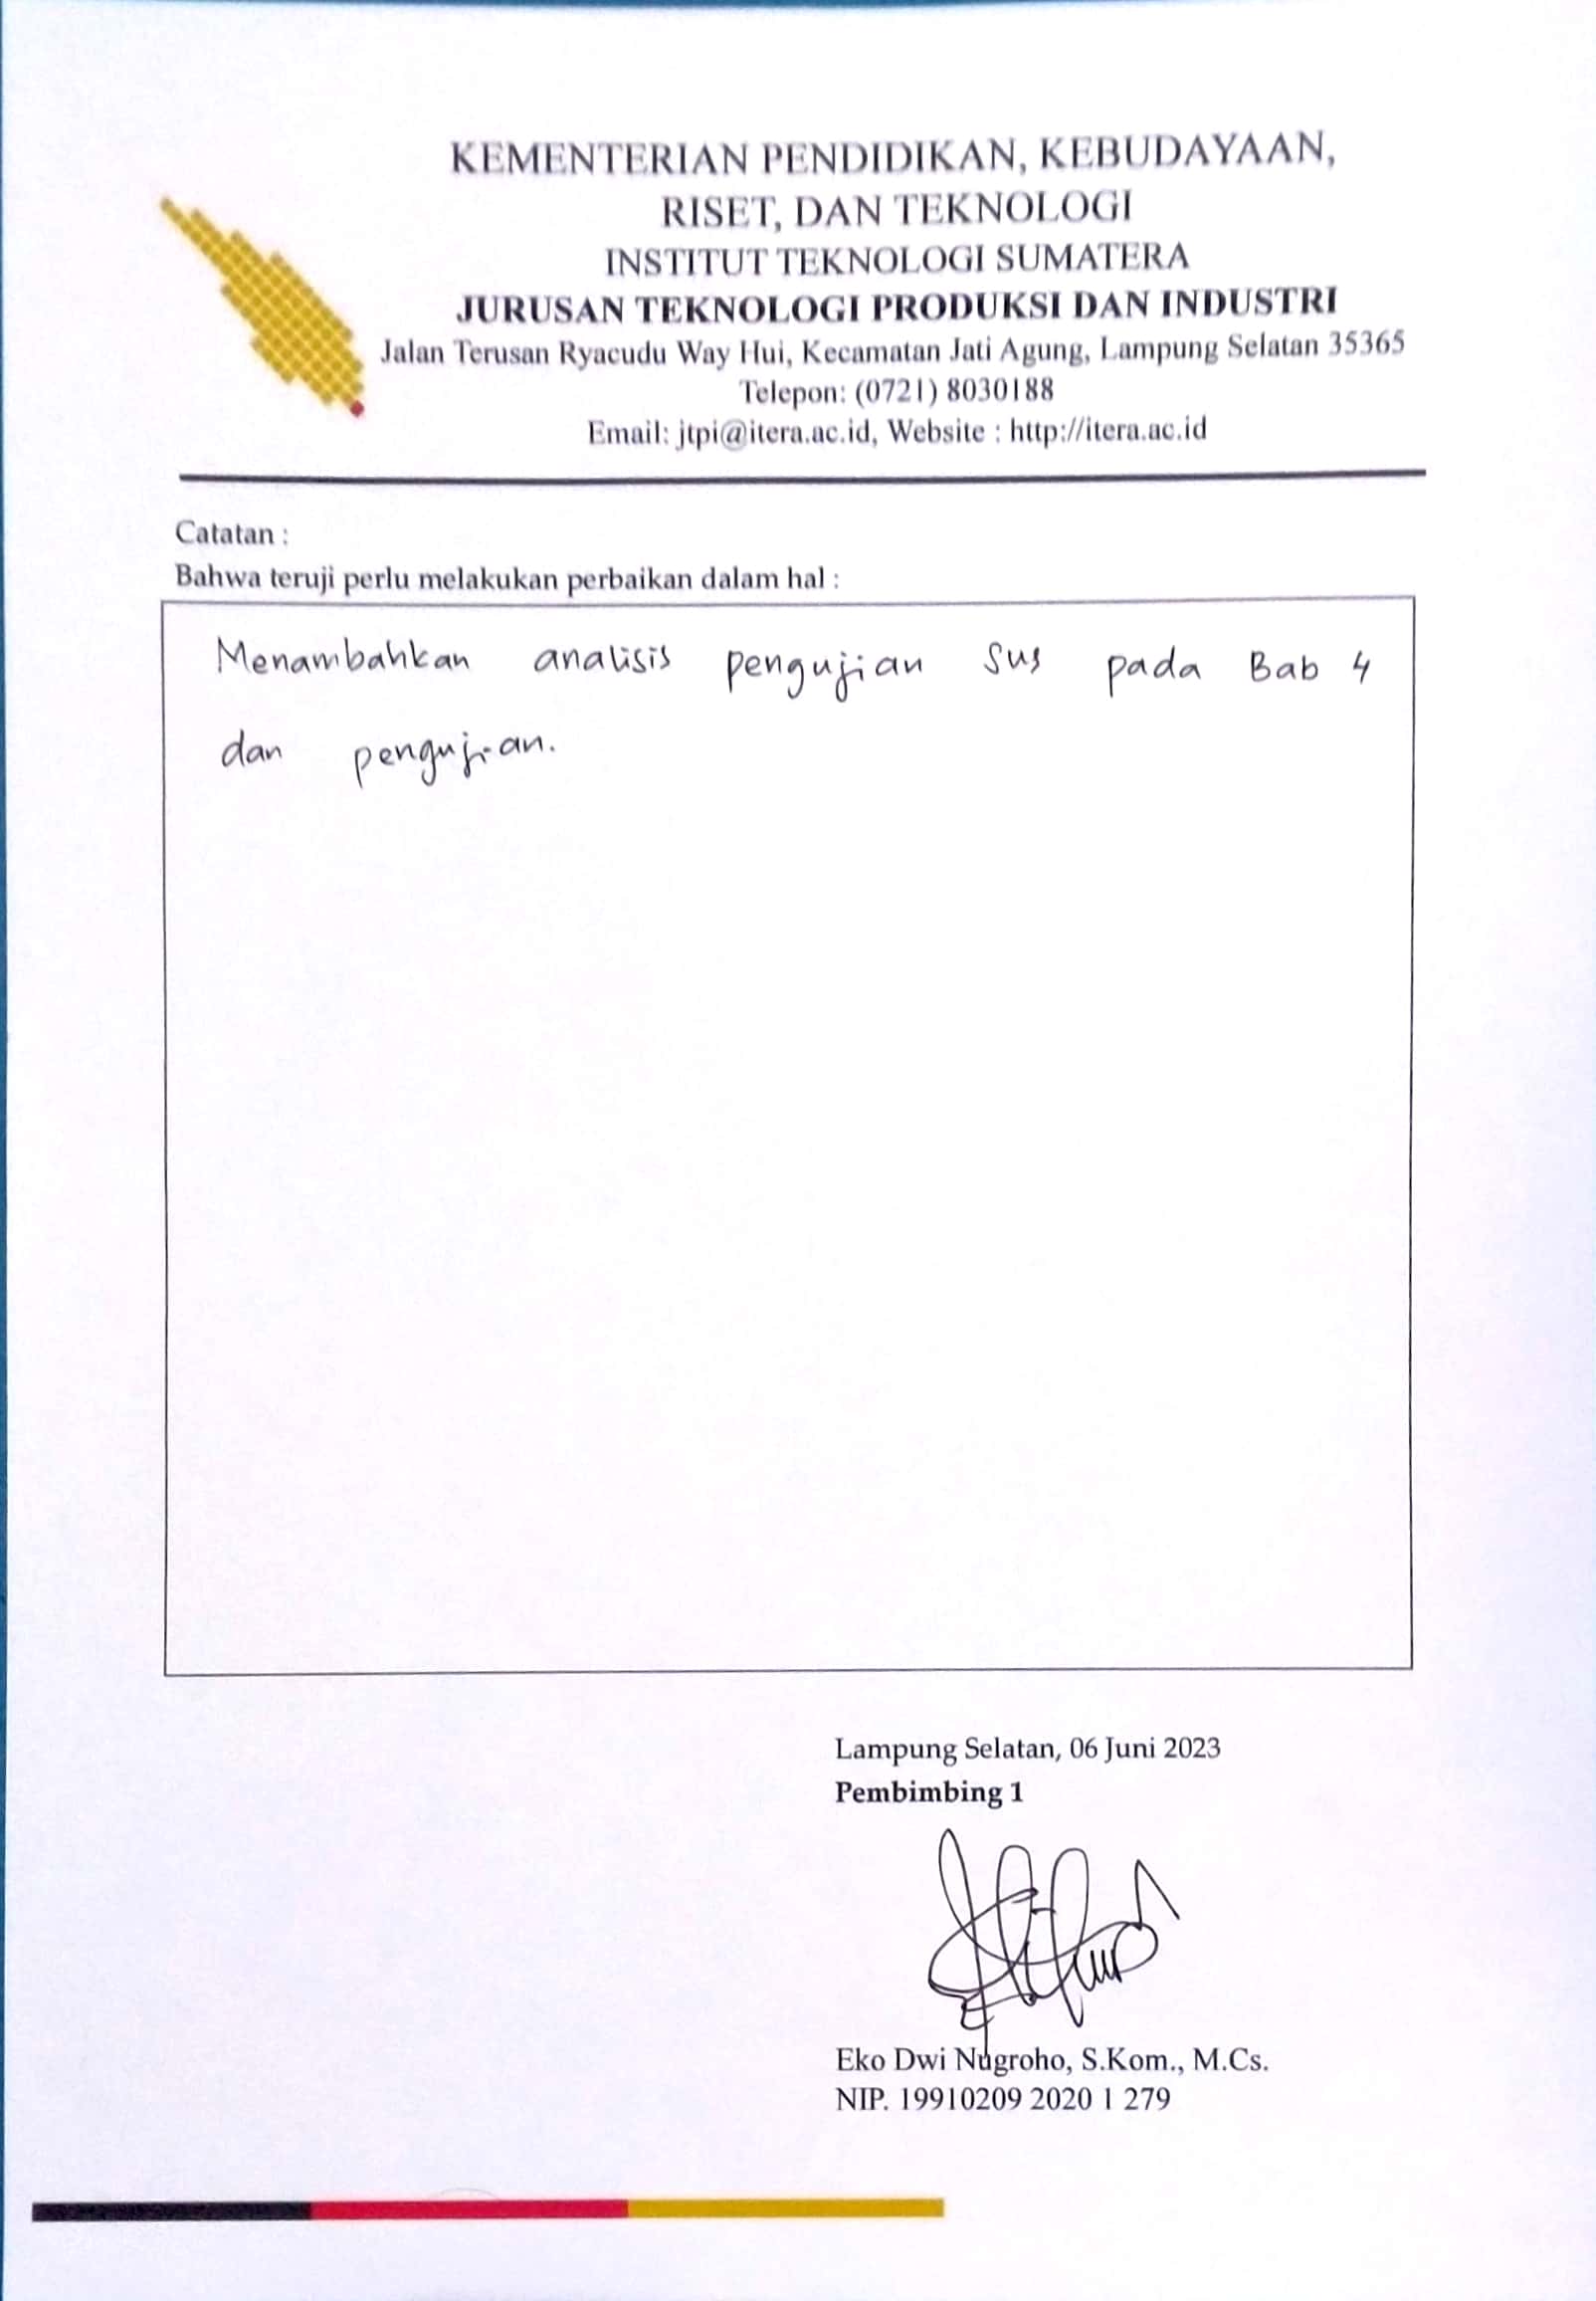 KEMENTERIAN PENDIDIKAN, KEBUDAYAAN,
RISET, DAN TEKNOLOGI
INSTITUT TEKNOLOGI SUMATERA
JURUSAN TEKNOLOGI PRODUKSI DAN INDUSTRI
Jalan Terusan Ryacudu Way Hui, Kecamatan Jati Agung, Lampung Selatan 35365
Telepon: (0721) 8030188
Email: jtpi@itera.ac.id, Website : http://itera.ac.id
Catatan :
Bahwa teruji perlu melakukan perbaikan dalam hal :
Menambahkan analisis pengujian SUS pada Bab 4
dan pengujian.
Lampung Selatan, 06 Juni 2023
Pembimbing 1
Eko Dwi Nugroho, S.Kom., M.Cs.
NIP. 19910209 2020 1 279